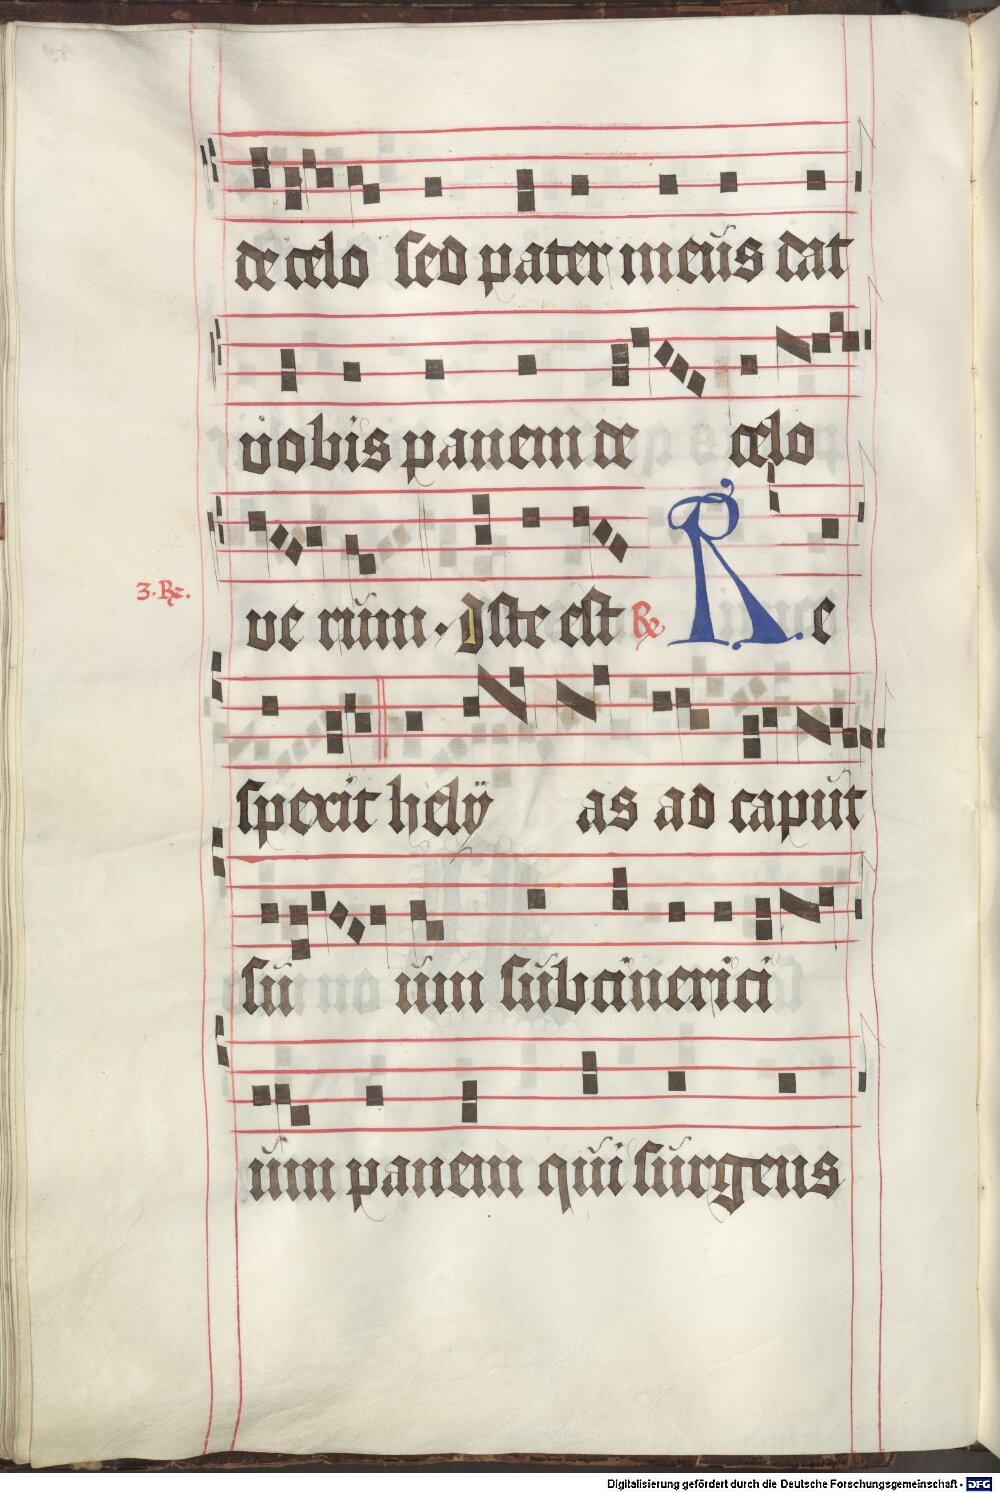 de celo sed pater meus dat
vobis panem de celo
3. R.
ve rum. Iste est R Re
spexit hely as ad caput
su um subcinerici
um panem qui surgens
Digitalisierung gefördert durch die Deutsche Forschungsgemeinschaft - DFG